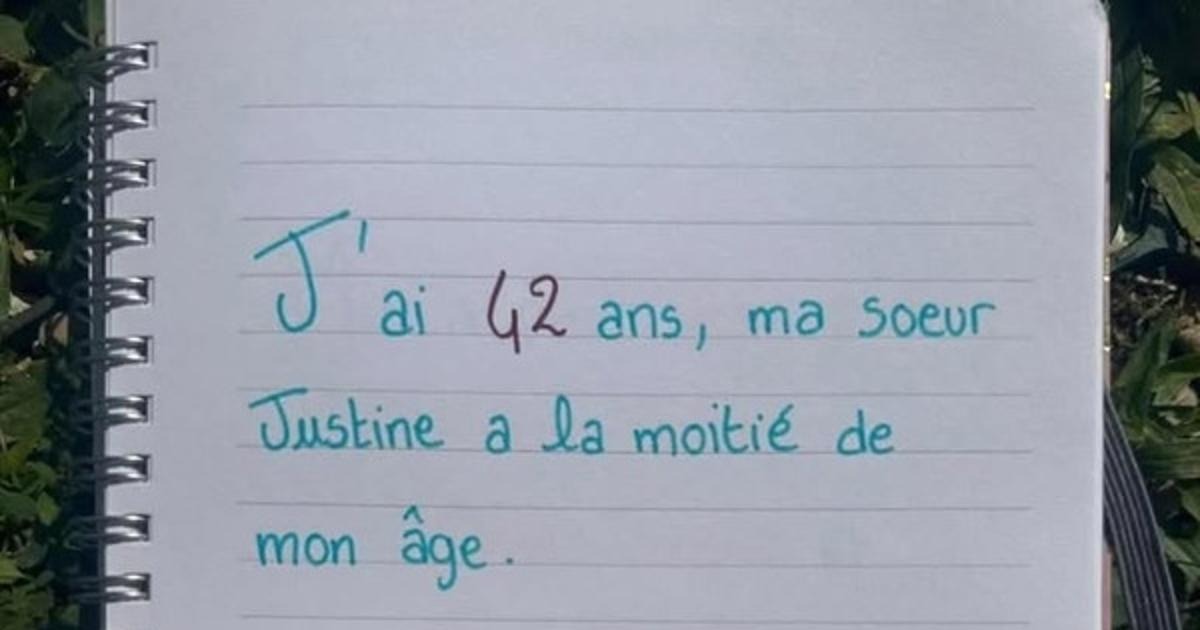 J'ai 42 ans, ma soeur
Justine a la moitié de
mon âge.